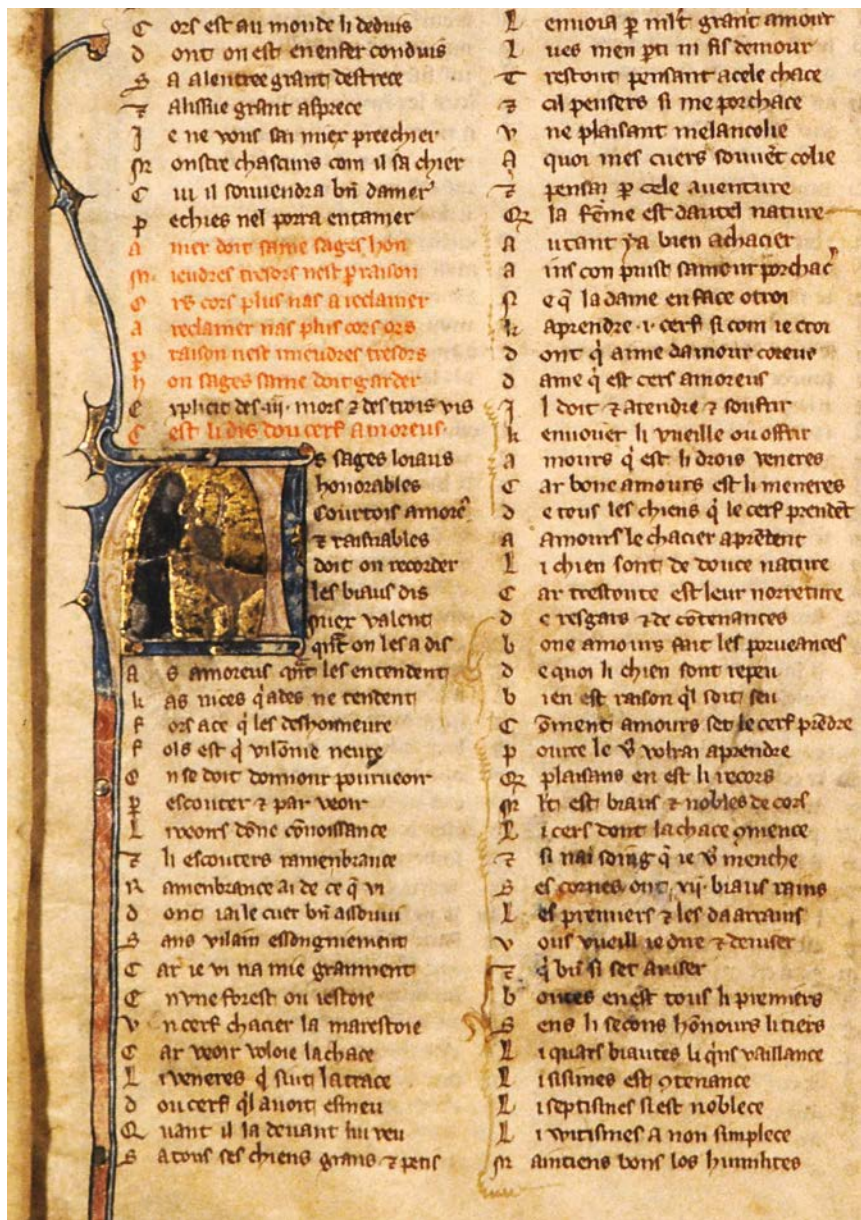 C ors est au monde li deduis
d ont on est en enfer conduis
S a alentree grant destrece
⁊ alissue grant asprece
J e ne vous sai miex preechier
M onstre chascuns com il sa chier
C ui il souuendra bn̄ damer
p echies nel porra entamer
a mer doit same sages hon
m ieudres tresors nest p raison
C rs cors plus nas a reclamer
a reclamer nas plus cors ors
p raison nest mieudres tresors
h on sages same doit garder
E xplicit des .iii. mors ⁊ des trois vis
C est li dis dou cerf amoreus.
L es sages loiaus
honorables
Courtois amore
⁊ raisnables
doit on recorder
les biaus dis
miex valent
qn̄t on les a dis
A s amoreus qn̄t les entendent
k as nices q̄ ades ne tendent
f ors ace q̄ les deshonneure
f ols est q̄ vilōnie neure
O n se doit donnour pourueoir
p escouter ⁊ par veoir
L i veoirs dōne cōnoissance
⁊ li escouters ramenbrance
R amenbrance ai de ce q̄ vi
d ont iai le cuer bn̄ assouui
S ans vilain essongniement
C ar ie vi na mie granment
E nvne forest ou iestoie
v n cerf chacier la marestoie
C ar veoir voloie la chace
L i veneres q̄ siut la trace
d ou cerf ql auoit esmeu
Q uant il la deuant lui veu
S a tous ses chiens grans ⁊ petis
L enuoia p mlt grant amour
L ues men pti ni fis demour
T restout pensant acele chace
⁊ cil pensers si me porchace
v ne plaisant melancolie
A quoi mes cuers souuēt colie
⁊ pensai p cele auenture
Q la fēme est dautel nature
a utant ya bien achacier
a ins con puist samour porchac
N e q̄ la dame en face otroi
k aprendre .i. cerf si com ie croi
d ont q̄ aime damour coreus
d ame q̄ est cers amoreus
J l doit ⁊ atendre ⁊ soufrir
k enuoier li vueille ou offrir
a mours q̄ est li drois veneres
C ar bone amours est li meneres
d e tous les chiens q̄ le cerf prendēt
a amours le chacier aprēdent
L i chien sont de douce nature
C ar trestoute est leur norreture
d e resgars ⁊ de cōtenances
b one amours fait les porueances
d e quoi li chien sont repeu
b ien est raison ql soit seu
C ōment amours set le cerf prēdre
p ource le v̄ volrai aprendre
Q plaisans en est li recors
M lt est biaus ⁊ nobles de cors
L i cers dont la chace ꝯmence
⁊ si nai soing q̄ ie v̄ menche
S es cornes ont .vij. biaus rains
L es premiers ⁊ les daarrains
v ous vueill ie dire ⁊ deuiser
⁊ q̄ bn̄ si set auiser
b ontes en est tous li premiers
S ens li secons hōnours li tiers
L i quars biautes li qns vaillance
L i sisimes est ꝯtenance
L i septismes si est noblece
L i witismes a non simplece
M aintiens bons los humilites